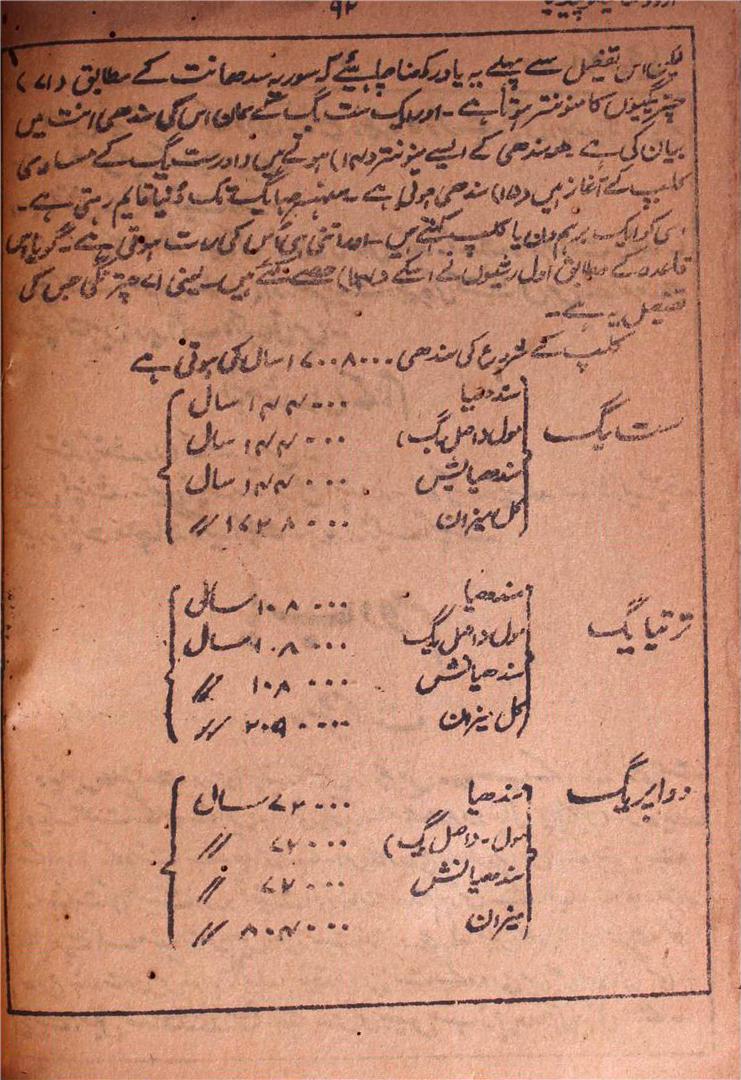 ۹۲
لیکن اس تفصیل سے پہلے یہ یاد رکھنا چاہئیے کہ سوریہ سدھانت کے مطابق (۷۱)
چتریگیوں کا منونتر ہوتا ہے - اور ایک ست یگ کے سمان اس کی سندھی انت میں
بیان کی ہے - معہ سندھی کے ایسے منونتر (۱۴) ہوتے ہیں اور ست یگ کے مساوی
کلپ کے آغاز میں (۱۵) سندھی ہوتی ہے - تک دُنیا قایم رہتی ہے -
اسی کو ایک برہم دن یا کلپ کہتے ہیں - اور اتنی ہی اُس کی رات ہوتی ہے - گویا اس
قاعدہ کے مطابق اول رشیوں نے اسکے (۱۴) حصے کئے ہیں - یعنی ۷۱ چتر یگی جس کی
تفصیل یہ ہے -
کلپ کے شروع کی سندھی ۱۷۰۰۸۰۰۰ سال کی ہوتی ہے
ست یگ
سندھیا ۱۴۴۰۰۰ سال
مول (اصل یگ) ۱۴۴۰۰۰۰ سال
سندھیانش ۱۴۴۰۰۰ سال
کل میزان ۱۷۲۸۰۰۰ //
ترتیا یگ
سندھیا ۱۰۸۰۰۰ سال
مول (اصل یگ ۱۰۸۰۰۰۰ سال
سندھیانش ۱۰۸۰۰۰ //
کل میزان ۲۰۵۹۰۰۰۰ //
دواپر یگ
سندھیا ۷۲۰۰۰ سال
مول - (اصل یگ) ۷۲۰۰۰۰ //
سندھیانش ۷۲۰۰۰ //
میزان ۸۰۴۰۰۰ //